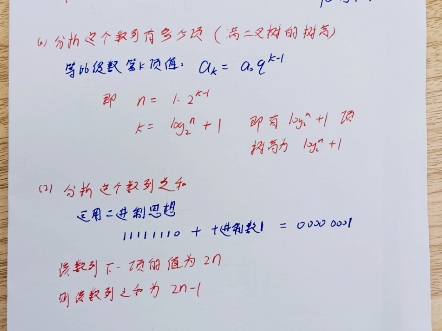 (1) 分析这个数列有多少项 (满二叉树的树高)
等比级数第k项值: aₖ = a₀ q^(k-1)
即 n = 1·2^(k-1)
k = log₂ⁿ + 1 即有 log₂ⁿ + 1 项
树高为 log₂ⁿ + 1
(2) 分析这个数列之和
运用二进制思想
11111110 + 十进制数1 = 00000001
该数列下一项的值为 2n
则该数列之和为 2n-1